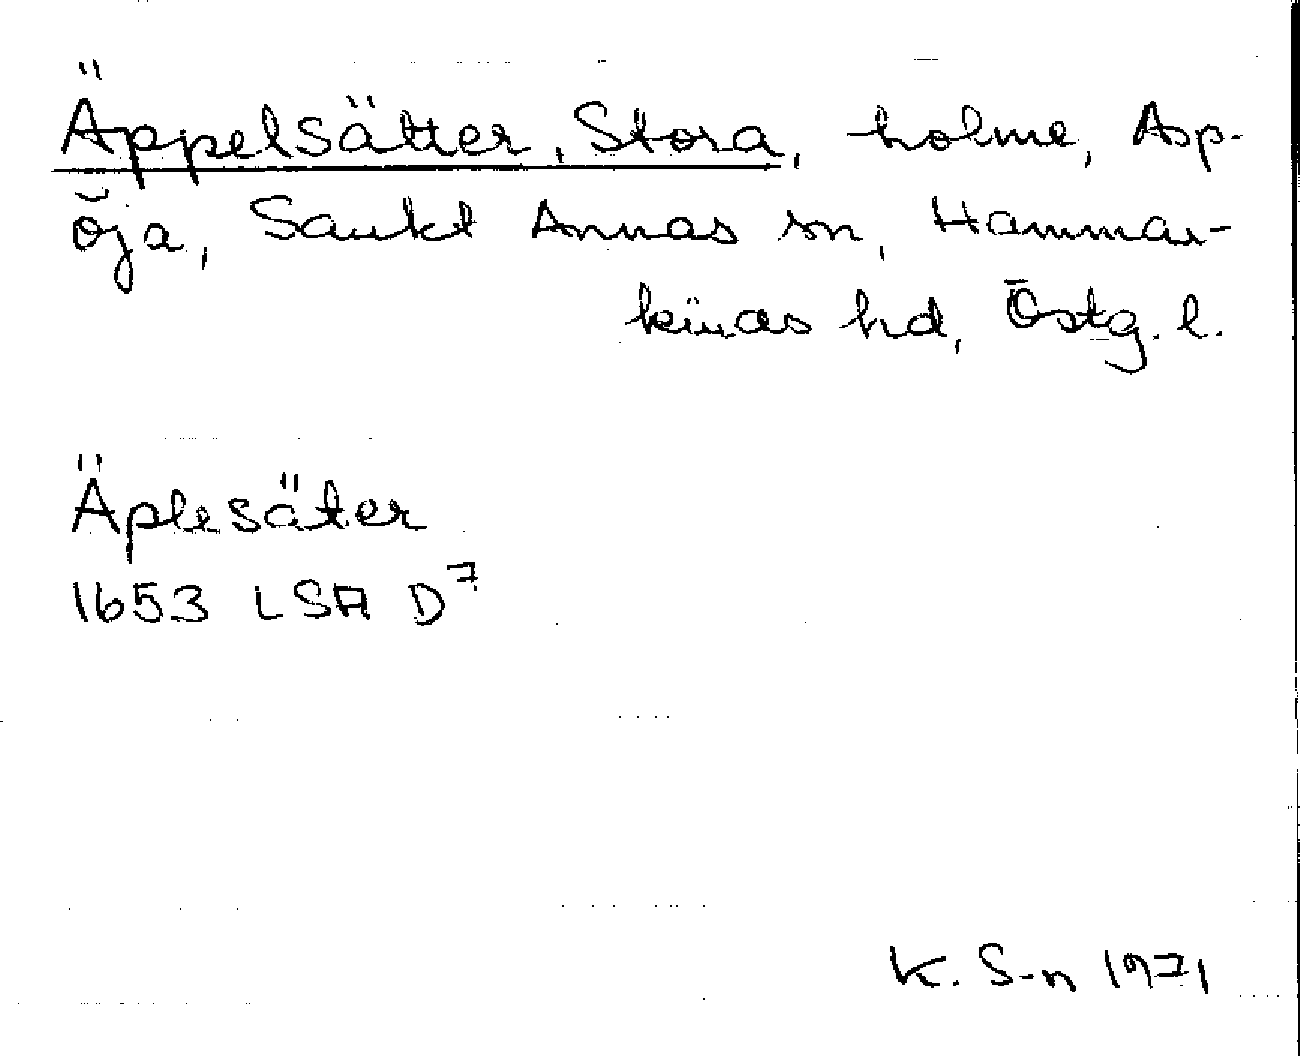 Äppelsätter, Stora, holme, Asp-
öja, Sankt Annas sn, Hammar-
kinds hd, Östg. l.
Äplesäter
1653 LSA D7
K. S-n 1971